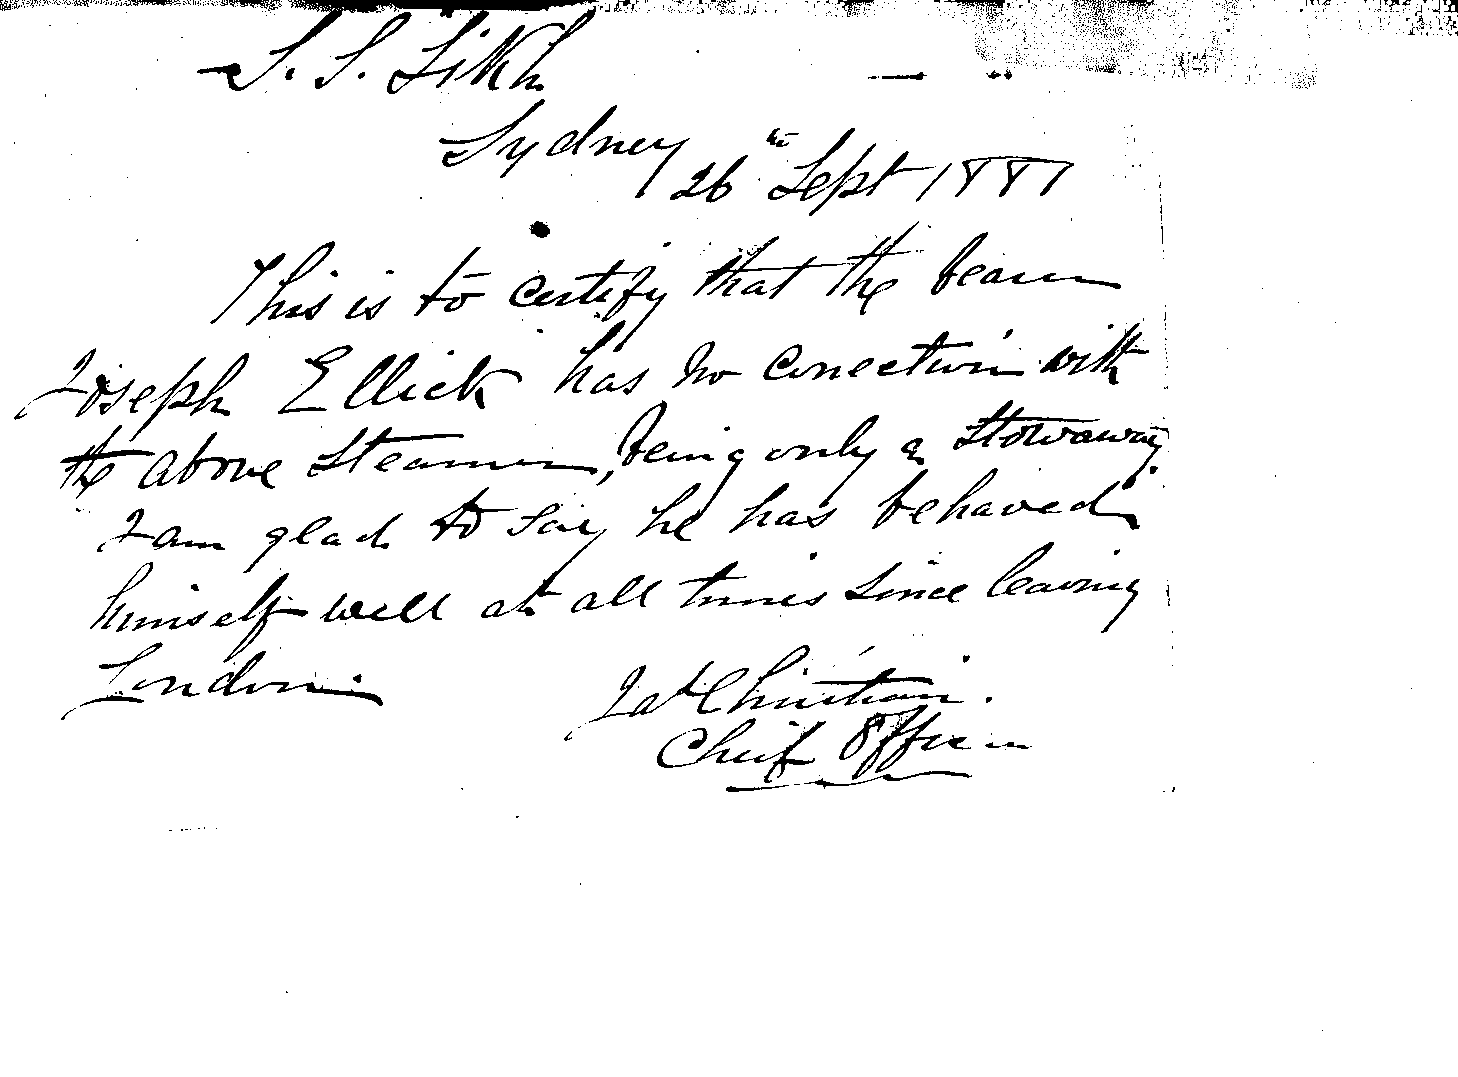 S. S. Sikh
Sydney
26th Sept 1887
This is to certify that the bearer
Joseph Ellick has no conection with
the above Steamer, being only a Stowaway.
I am glad to say he has behaved
himself well at all times since leaving
London.
Jas Christian.
Cheif Officer